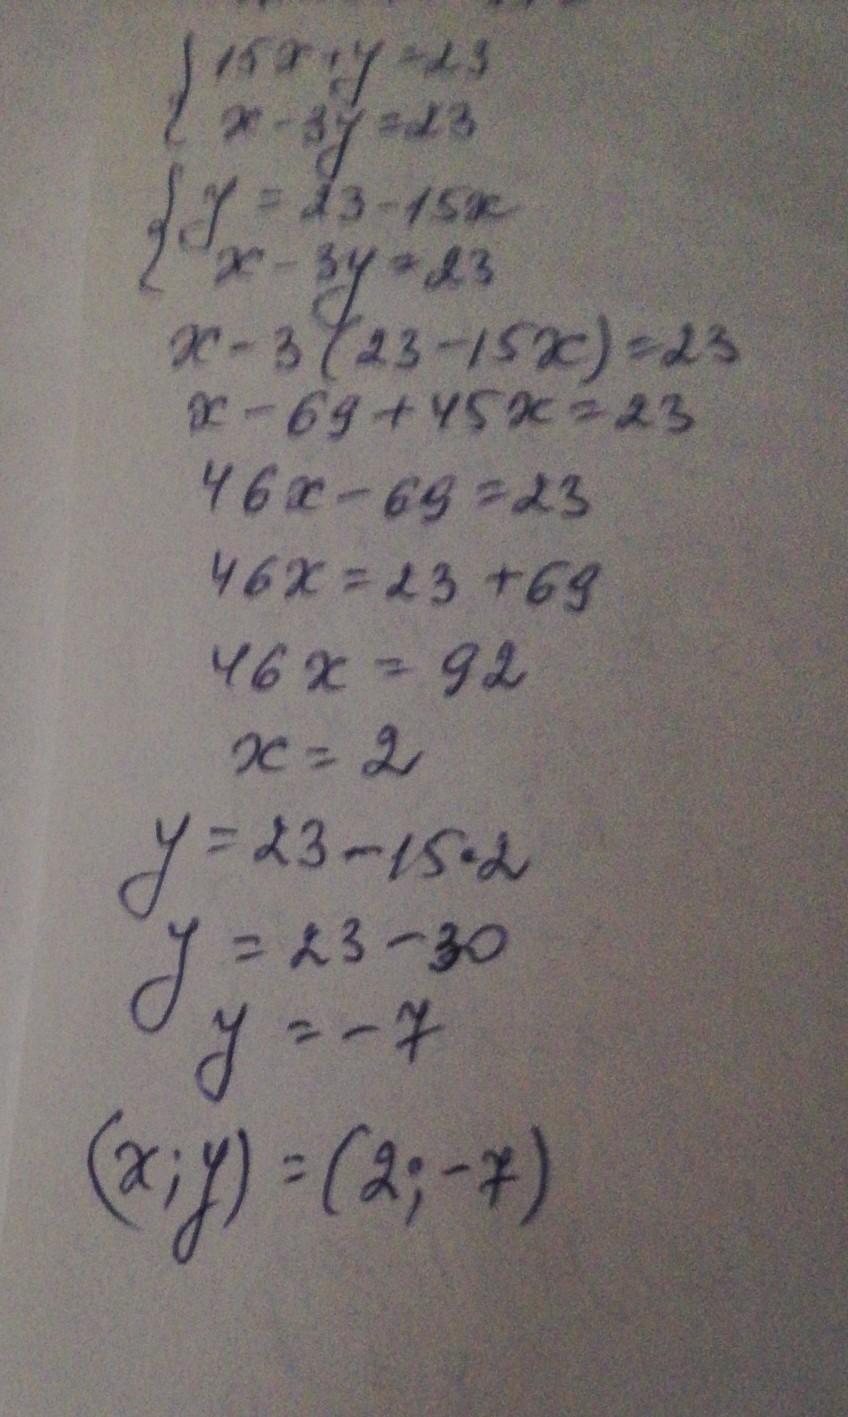 { 15x+y=23
x-3y=23
{ y=23-15x
x-3y=23
x-3(23-15x)=23
x-69+45x=23
46x-69=23
46x=23+69
46x=92
x=2
y=23-15·2
y=23-30
y=-7
(x;y)=(2;-7)